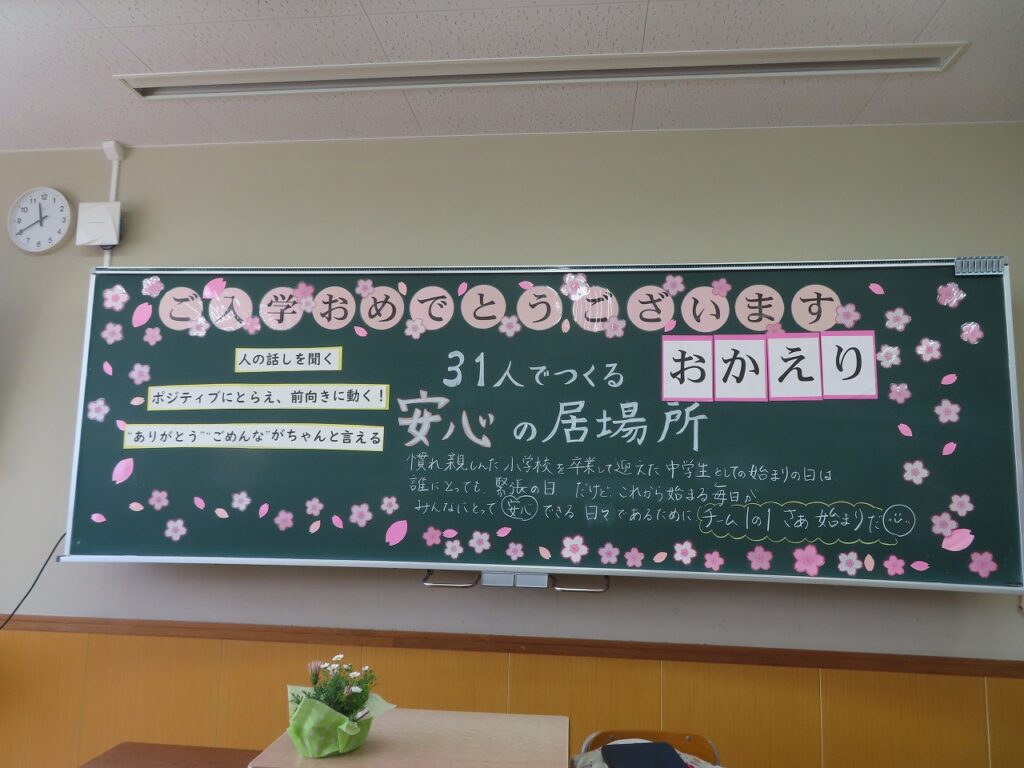 ご入学おめでとうございます
おかえり
人の話しを聞く
ポジティブにとらえ、前向きに動く！
“ありがとう”“ごめんな”がちゃんと言える
31人でつくる
安心の居場所
慣れ親しんだ小学校を卒業して迎えた中学生としての始まりの日は、
誰にとっても、緊張の日 だけど、これから始まる毎日が
みんなにとって安心できる日々であるために、チーム1の1 さぁ 始まりだ
12
1
2
3
4
5
6
7
8
9
10
11